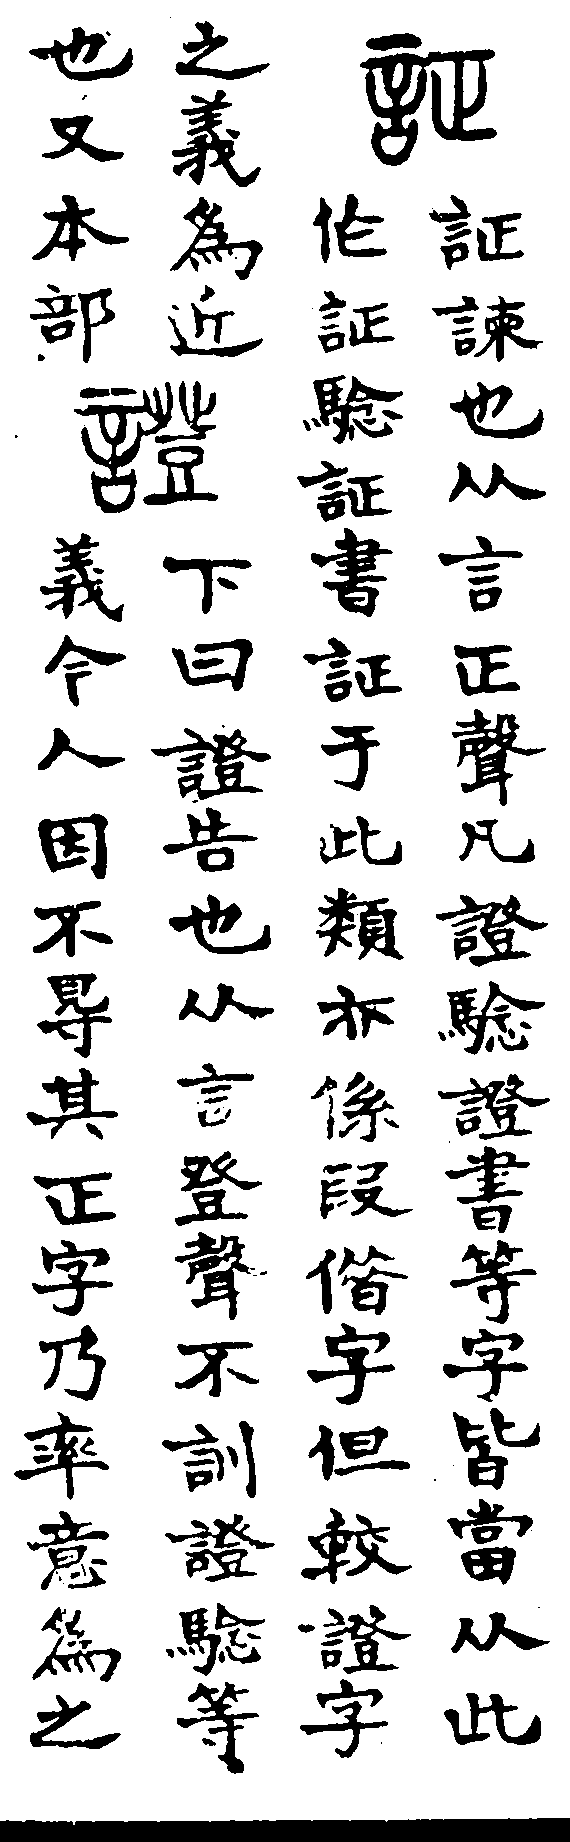 証
証諫也从言正聲凡證騐證書等字皆當从此
作証騐証書証于此類亦係段偕字但較證字
之義為近
也又本部
證
下曰證告也从言登聲不訓證騐等
義今人因不㝵其正字乃率意為之